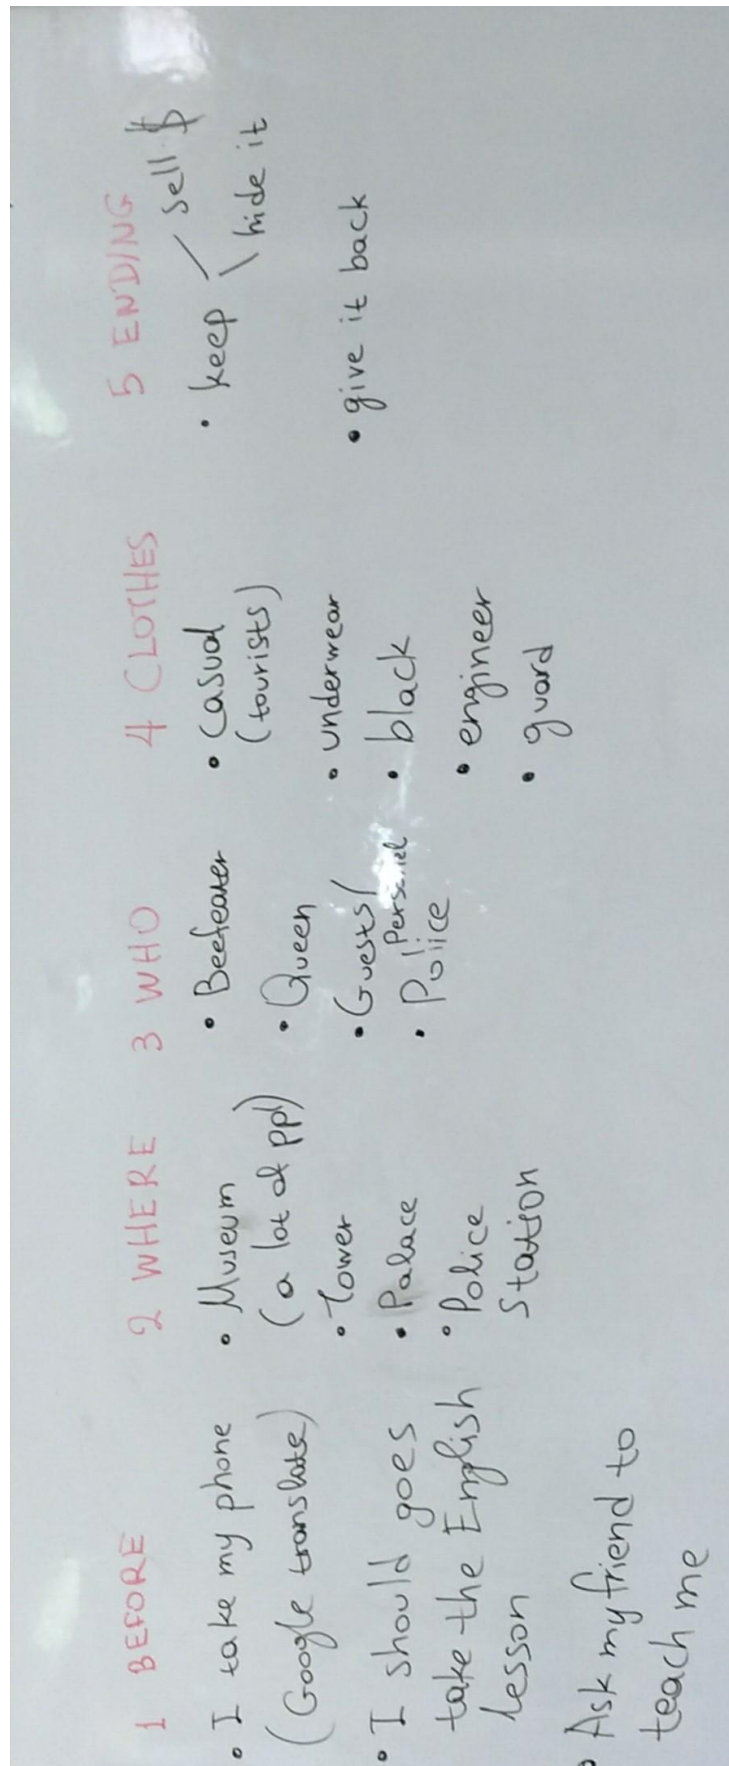 1 BEFORE
• I take my phone
(Google translate)
• I should goes
take the English
lesson
• Ask my friend to
teach me
2 WHERE
• Museum
(a lot of ppl)
• Tower
• Palace
• Police
Station
3 WHO
• Beefeater
• Queen
• Guests/
• Police
4 CLOTHES
• Casual
(tourists)
• underwear
• black
• engineer
• guard
5 ENDING
• keep
sell $
hide it
• give it back